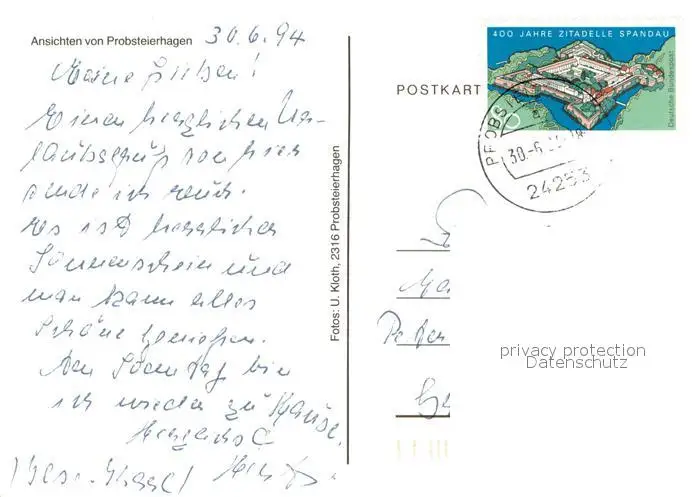 Ansichten von Probsteierhagen 30.6.94
Meine Lieben!
Einen herzlichen Ur-
laubsgruß von hier
sende ich euch.
Es ist herrlicher
Sonnenschein und
man kann alles
Schöne genießen.
Am Sonntag bin
ich wieder zu Hause.
Herzliche
Fotos: U. Kloth, 2316 Probsteierhagen
POSTKART
400 JAHRE ZITADELLE SPANDAU
Deutsche Bundespost
30.-6.
24253
privacy protection
Datenschutz